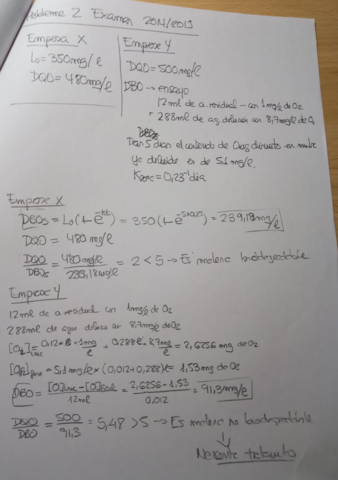 Problema 2 Examen 20/11/2013
Empresa X
L₀ = 350 mg/l
DQO = 480 mg/l
Empresa Y
DQO = 500 mg/l
DBO → ensayo
12 ml de a. residual con 1 mg/l de O₂
288 ml de ag. con 8,7 mg/l de O₂
Tras 5 días el contenido de O₂ en
es de 5,1 mg/l.
K = 0,23 día
Empresa X
DBO₅ = L₀(1-e^-kt) = 350(1-e^-5x0,23) = 239,18 mg/l
DQO = 480 mg/l
DQO/DBO₅ = 480 mg/l / 239,18 mg/l = 2 < 5 → Es materia biodegradable
Empresa Y
12 ml de a residual con 1 mg/l de O₂
288 ml de agua con 8,7 mg/l de O₂
+ 0,288 l · 8,7 mg/l = 2,6256 mg de O₂
= 5,1 mg/l x (0,012 + 0,288) l = 1,53 mg de O₂
DBO = / 12 ml = 2,6256 - 1,53 / 0,012 = 91,3 mg/l
DQO/DBO = 500/91,3 = 5,48 > 5 → Es materia no biodegradable
↓
Necesita